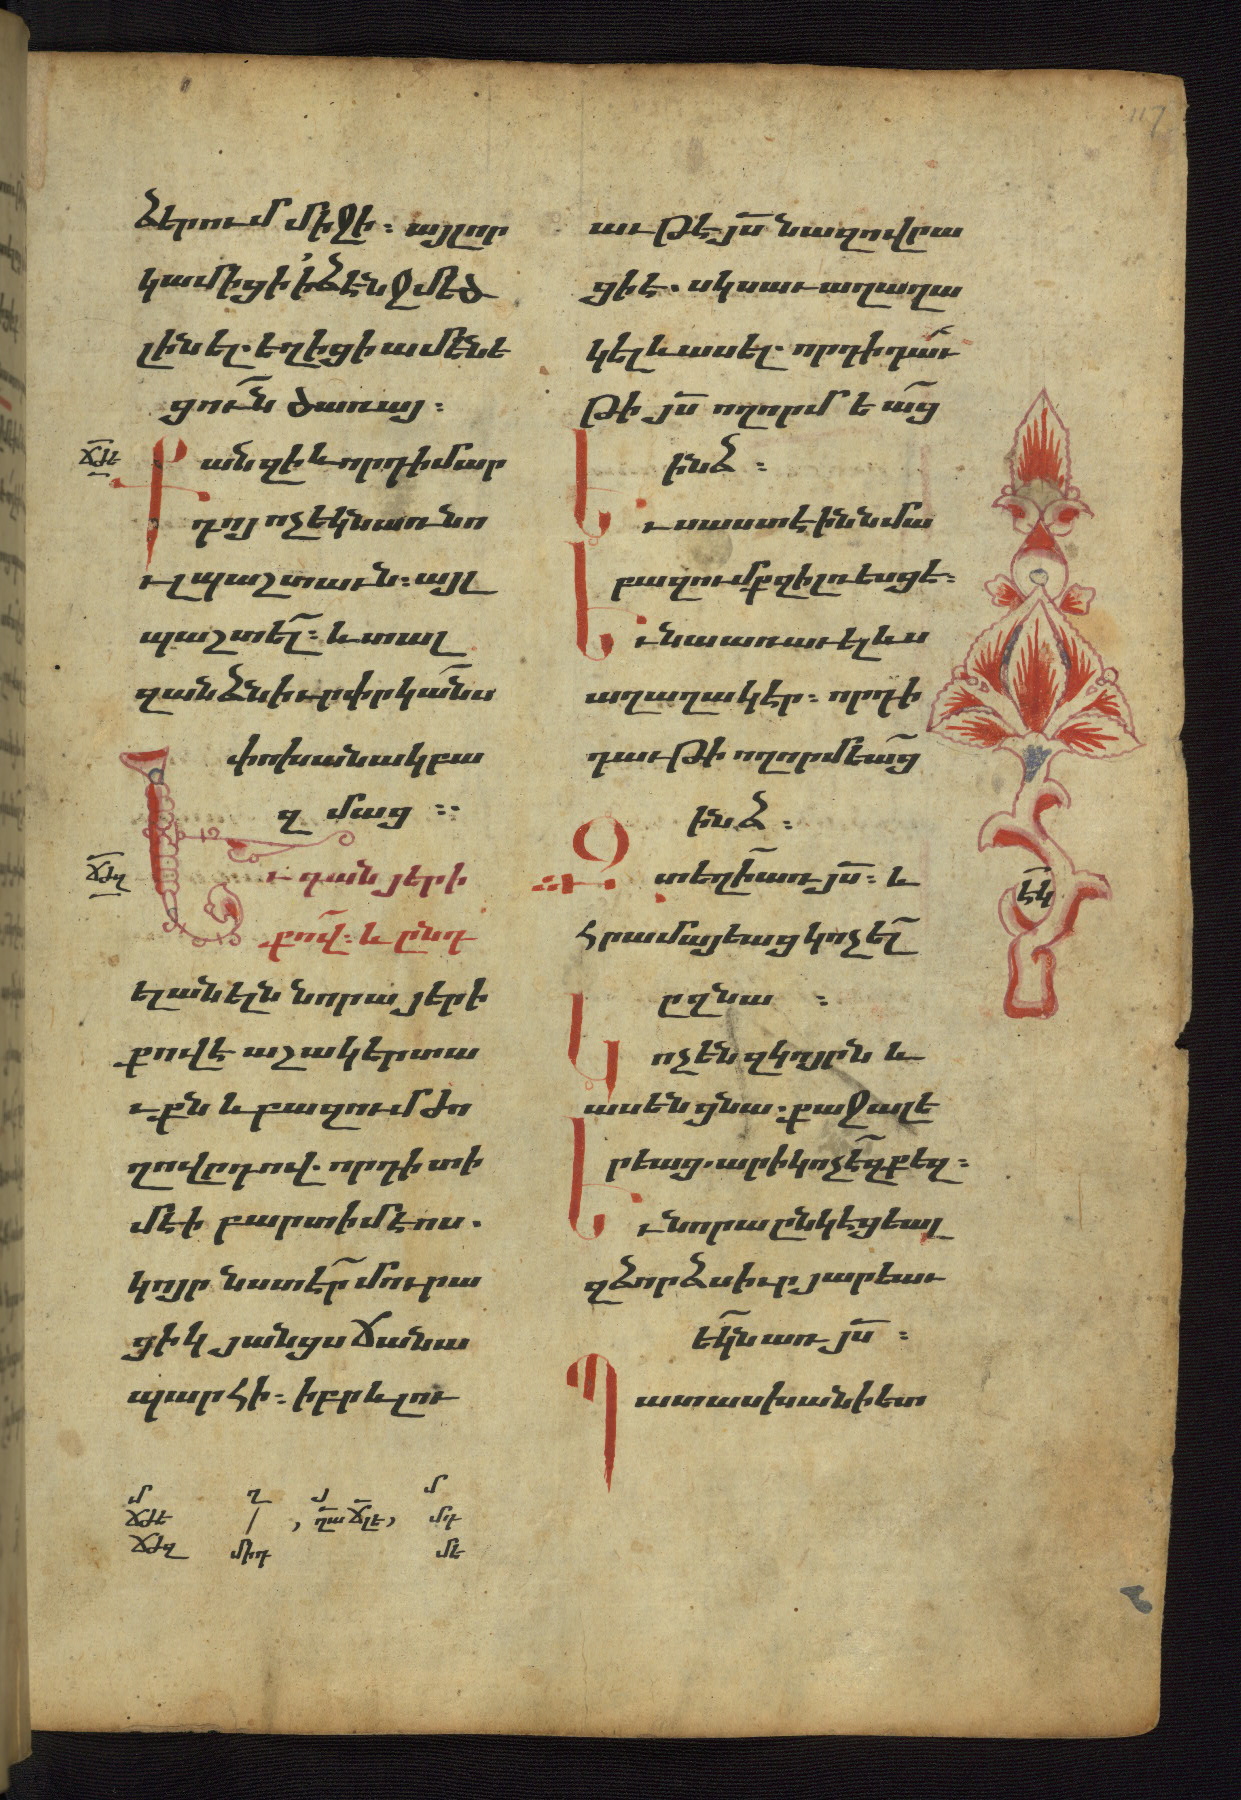 ձերում միջի։ այլ որ
կամիցի ի ձէնջ մեծ
լինել. եղիցի ամենե
ցու՜ն ծառայ։
ՃԺԵ
Քանզի և որդի մար
դոյ ոչ եկն առ նո
ւլ պաշտաւն։ այլ
պաշտել՜։ և տալ
զանձն իւր փրկա՜նս
փոխանակ բա
զմաց։։
ՃԺԶ
Եւ գան յերի
քով՜։ և ընդ
ելանելն նորա յերի
քովէ աշակերտա
ւքն և բազում ժո
ղովրդով. որդի տի
մէի բարտիմէոս.
կոյր նստէր՜ մուրա
ցիկ յանցս ճանա
պարհի։ իբրև լու
աւ թէ յս՜ նազովրա
ցի է. սկսաւ աղաղա
կել և ասել. որդի դաւ՜
թի յս՜ ողորմեա՜ց
ինձ։
Եւ սաստէին նմա
բազումք զի լռեսցե։
Եւ նա առաւել ևս
աղաղակէր։ որդի
դաւթի ողորմեա՜ց
ինձ։
Զտեղի՜ առ յս՜։ և
հրամայեաց կոչել՜
ըզնա։
Կոչեն զկոյրն և
ասեն ցնա. քաջալե
րեաց. արի կոչե՜ զքեզ։
Եւ նորա ընկեցեալ
զձորձս իւր յարեաւ
եկ՜ն առ յս՜։
Պատասխանի ետ
ԷԿ
մ ղ յ մ
ՃԺԵ / , ՂԱ ՃԼԷ, ՄԴ
ՃԺԶ ՄԻԴ ՄԵ
117